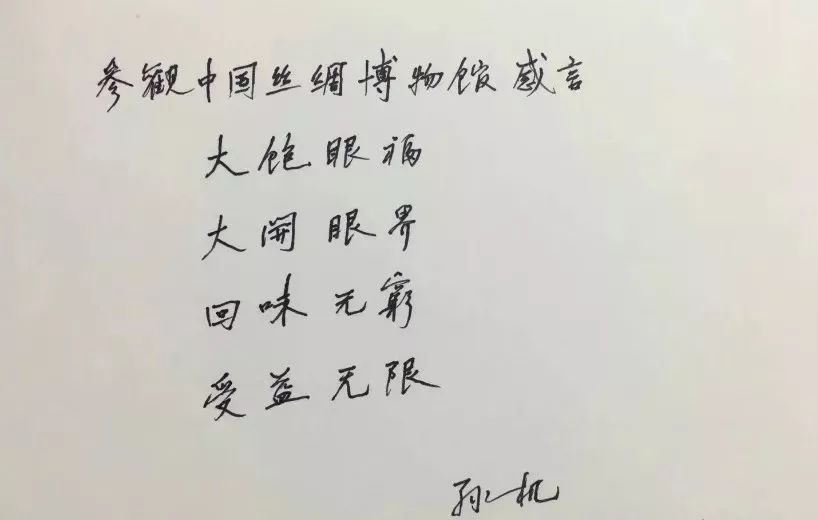 参觀中国丝綢博物馆感言
大飽眼福
大開眼界
回味无窮
受益无限
孙机